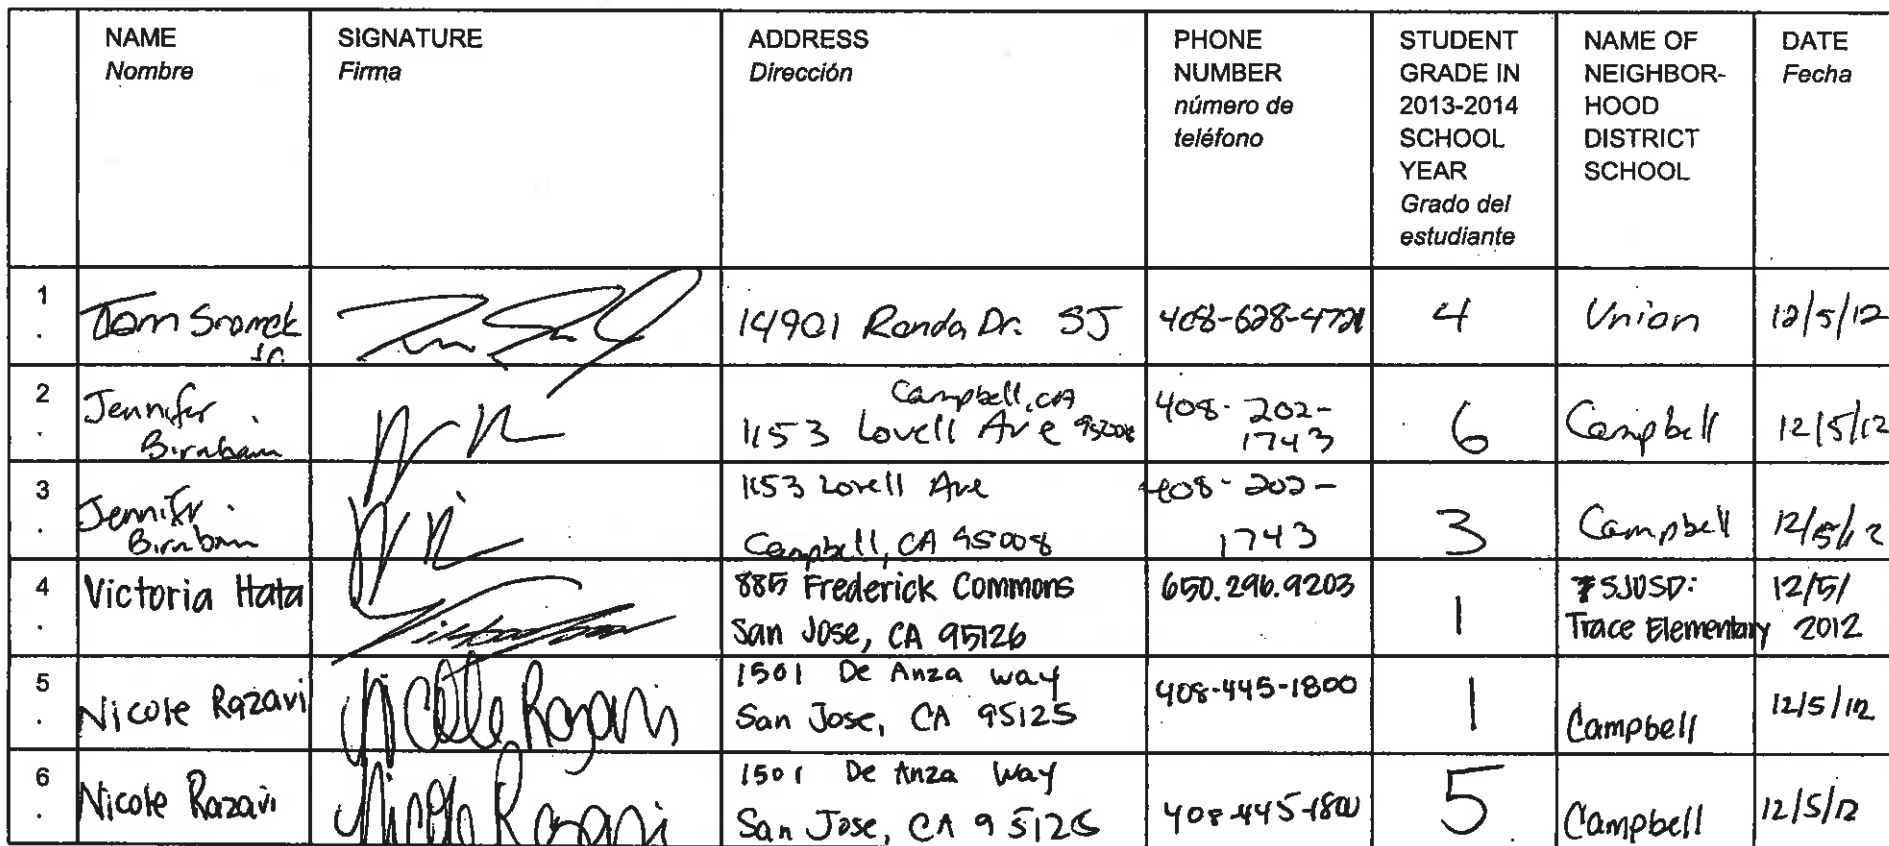 NAME
Nombre
SIGNATURE
Firma
ADDRESS
Dirección
PHONE
NUMBER
número de
teléfono
STUDENT
GRADE IN
2013-2014
SCHOOL
YEAR
Grado del
estudiante
NAME OF
NEIGHBOR-
HOOD
DISTRICT
SCHOOL
DATE
Fecha
1.
Tom
Jr.
14901 Ronda Dr. SJ
4
Union
12/5/12
2.
Jennifer
Birnbaum
Campbell, CA
1153 Lovell Ave 95008
408-202-
1743
6
Campbell
12/5/12
3.
Jennifer
Birnbaum
1153 Lovell Ave
Campbell, CA 95008
408-202-
1743
3
Campbell
12/5/12
4.
Victoria Hata
885 Frederick Commons
San Jose, CA 95126
650.296.9203
1
SJUSD:
Trace Elementary
12/5/
2012
5.
Nicole Razavi
Nicole Razavi
1501 De Anza way
San Jose, CA 95125
408-445-1800
1
Campbell
12/5/12
6.
Nicole Razavi
Nicole Razavi
1501 De Anza Way
San Jose, CA 95125
408-445-1800
5
Campbell
12/5/12